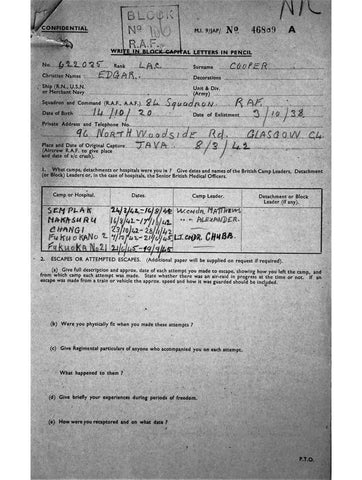 N/R
BLOCK
No 106
R.A.F.
CONFIDENTIAL
M.I. 9/JAP/ No 46809 A
WRITE IN BLOCK CAPITAL LETTERS IN PENCIL
No. 622025 Rank LAC Surname COOPER
Christian Names EDGAR. Decorations
Ship (R.N., U.S.N. or Merchant Navy) Unit & Div. (Army)
Squadron and Command (R.A.F., A.A.F.) 84 Squadron RAF.
Date of Birth 14/10/20 Date of Enlistment 3/10/38
Private Address and Telephone No.
96 NORTH WOODSIDE Rd. GLASGOW C4
Place and Date of Original Capture JAVA 8/3/42
(Aircrew R.A.F. to give place and date of a/c crash).
1. What camps, detachments or hospitals were you in? Give dates and names of the British Camp Leaders, Detachment or (Block) Leaders or, in the case of hospitals, the Senior British Medical Officers.
Camp or Hospital. Dates. Camp Leader. Detachment or Block Leader (if any).
SEMPLAK W CMDR MATTHEWS
MAKASURU " " ALEXANDER
CHANGI
FUKUOKA No 2 LT CMDR CHUBB.
FUKUOKA No 21
2. ESCAPES OR ATTEMPTED ESCAPES. (Additional paper will be supplied on request if required).
(a) Give full description and approx. date of each attempt you made to escape, showing how you left the camp, and from which camp each attempt was made. State whether there was an air-raid in progress at the time or not. If an escape was made from a train or vehicle the approx. speed and how it was guarded should be included.
(b) Were you physically fit when you made these attempts?
(c) Give Regimental particulars of anyone who accompanied you on each attempt.
What happened to them?
(d) Give briefly your experiences during periods of freedom.
(e) How were you recaptured and on what date?
P.T.O.